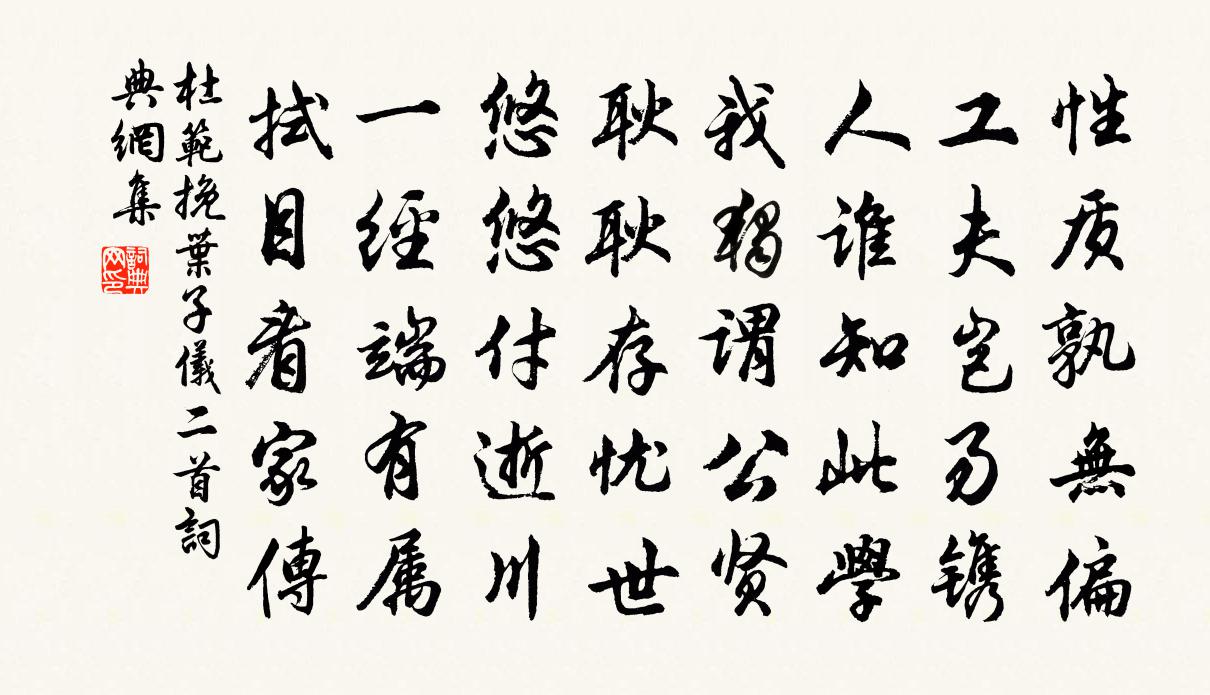 性质孰無偏
工夫岂易镌
人谁知此學
我獨谓公贤
耿耿存忧世
悠悠付逝川
一經端有属
拭目看家傳
杜範挽葉子儀二首詞
典網集
詞典
网印